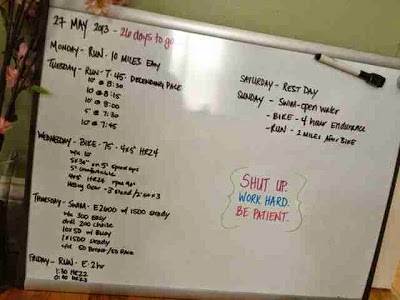 27 MAY 2013 - 26 days to go
MONDAY - RUN - 10 MILES EASY
TUESDAY - RUN - T: 45 DESCENDING PACE
10' @ 8:30
10' @ 8:15
10' @ 8:00
5' @ 7:30
10' @ 7:45
WEDNESDAY - BIKE - 75' - 4x5' HRZ4
W/U 10'
5' comfortable
4x5' HRZ4
THURSDAY - SWIM - E2600 w/ 1500 steady
W/U 300 easy
drill 200 choice
10x50 w/ buoy
1x1500 steady
FRIDAY - RUN - E: 2hr
1:30 HRZ2
0:30 HRZ3
SATURDAY - REST DAY
SUNDAY - SWIM - open water
- BIKE - 4 hour ENDURANCE
- RUN - 2 MILES AFTER BIKE
SHUT UP.
WORK HARD.
BE PATIENT.